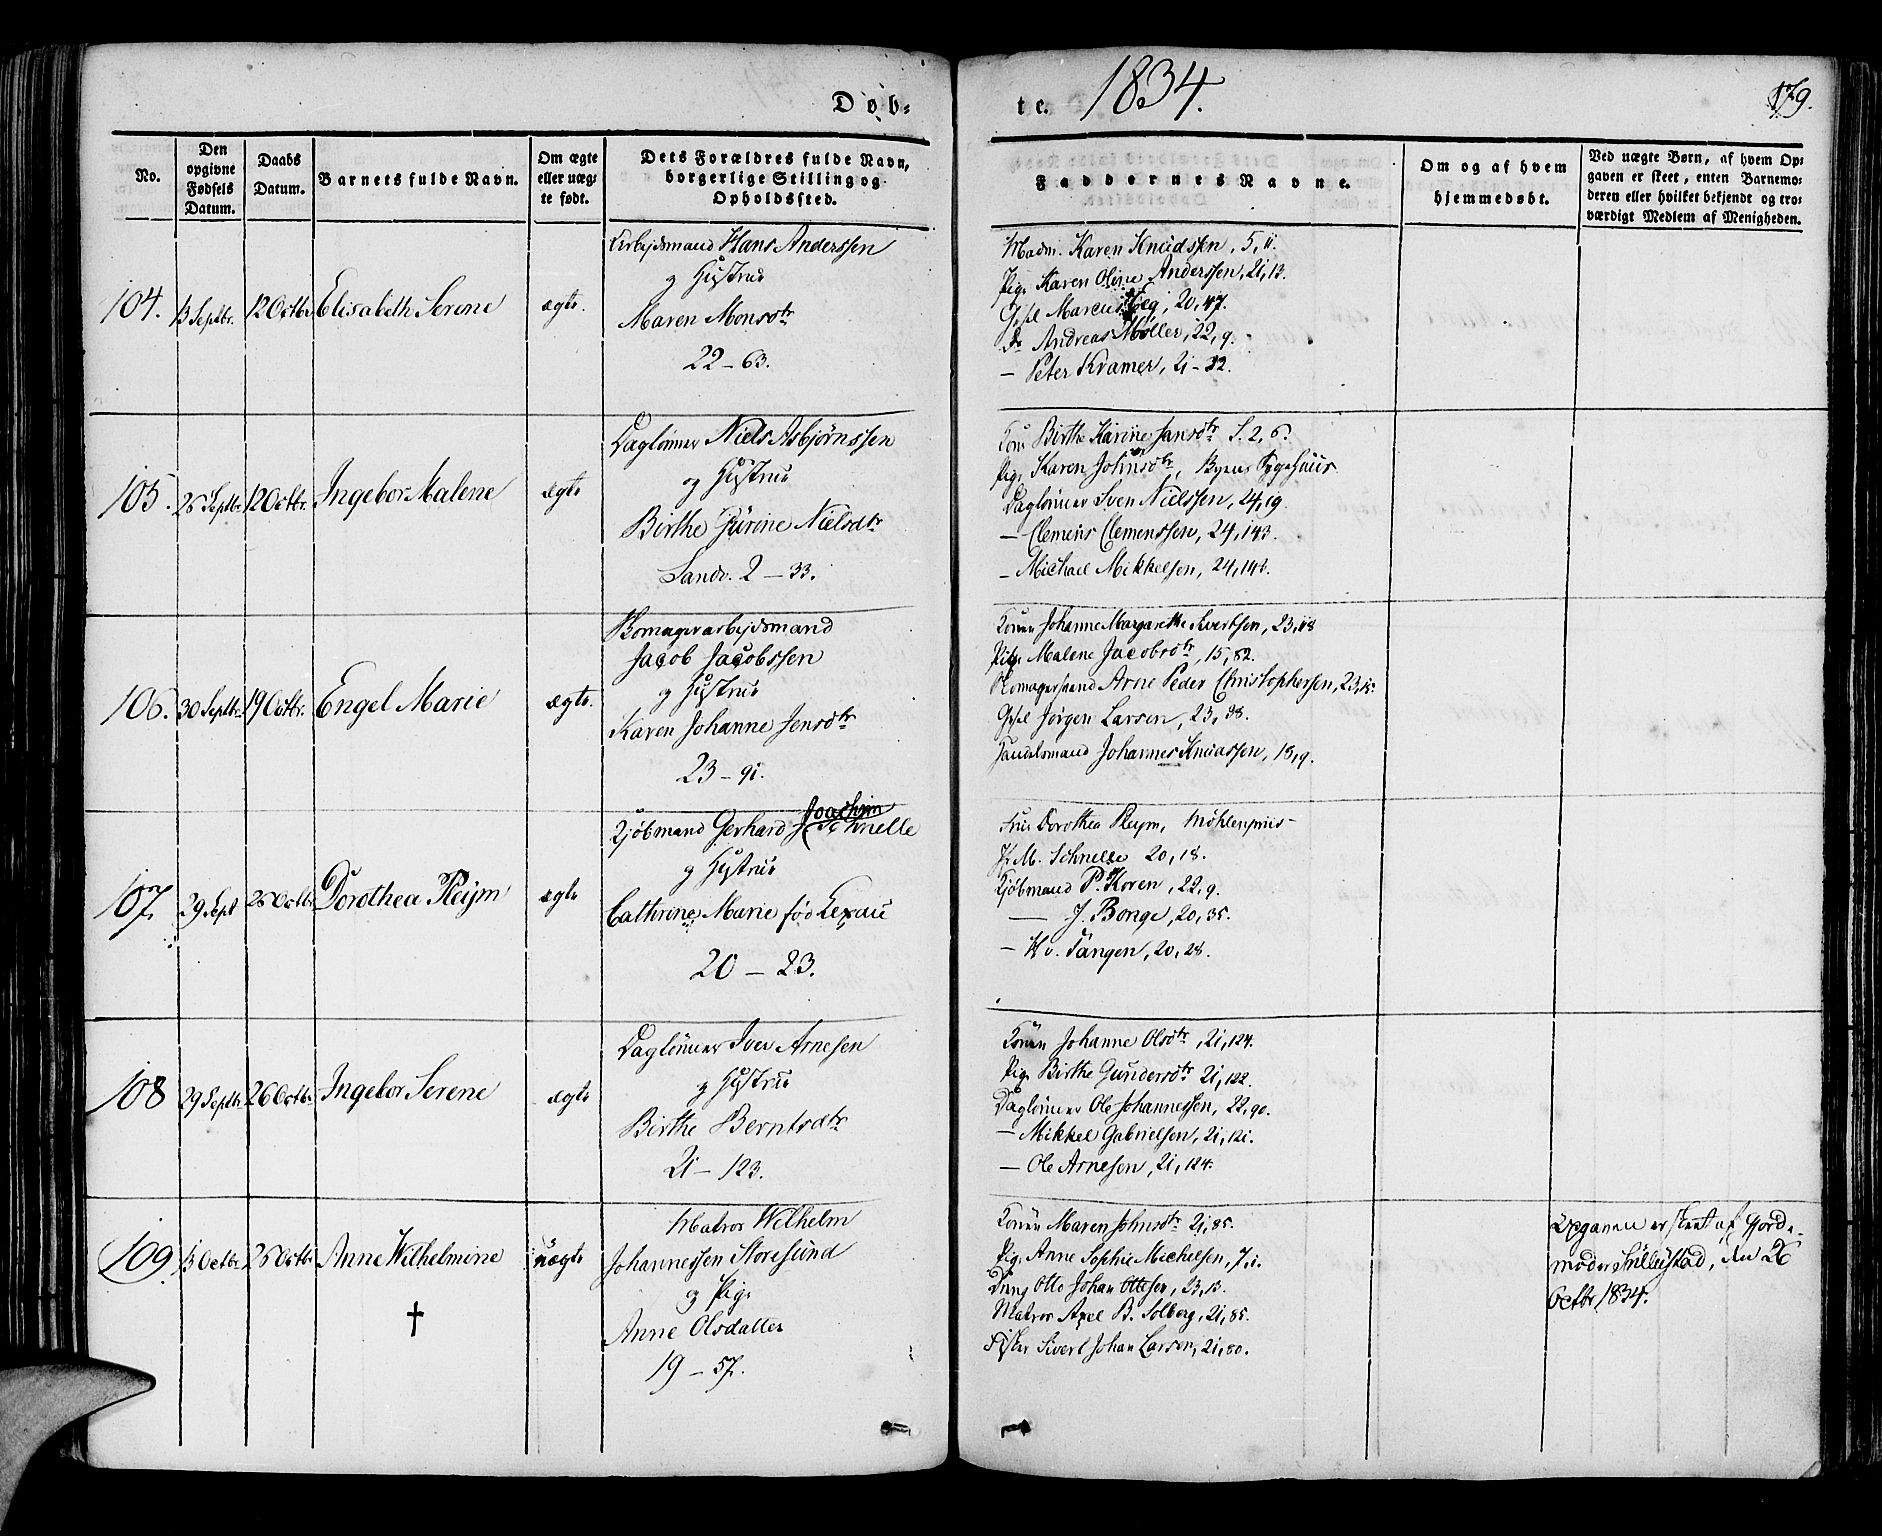 Døb-
te. 1834.
179.
No.
Den
opgivne
Fødsels
Datum.
Daabs
Datum.
Barnets fulde Navn.
Om ægte
eller uæg-
te født.
Dets Forældres fulde Navn,
borgerlige Stilling og
Opholdssted.
Faddernes Navne.
Om og af hvem
hjemmedøbt.
Ved uægte Børn, af hvem Op-
gaven er skeet, enten Barnemo-
deren eller hvilket bekjendt og tro-
værdigt Medlem af Menigheden.
104.
13 Septbr.
12 Octbr
Elisabeth Serene
ægte.
Arbejdsmand Hans Anderssen
og Hustrue
Maren Monsdtr
22 – 63.
Madm. Karen Knudssen, 5, 11.
Pige Karen Oline Anderssen, 21, 13.
Gsel Marcus Høeg, 20, 47.
Do Andreas Møller, 22, 9.
— Peter Kramer, 21 – 32.
105.
26 Septbr
12 Octbr.
Ingebor Malene
ægte
Daglønner Niels Asbjørnssen
og Hustrue
Birthe Gurine Nielsdtr
Sandv. 2 – 33.
Kone Birthe Karine Jansdtr S. 2, 6.
Pige Karen Johnsdtr, Byens Sygehuus
Daglønner Sven Nielssen, 24, 19.
— Clemens Clemenssen, 24, 143.
— Michael Mikkelsen, 24, 143.
106.
30 Septbr.
19 Octbr.
Engel Marie
ægte.
Skomagerarbejdsmand
Jacob Jacobssen
og Hustrue
Karen Johanne Jensdtr
23 – 91.
Konen Johanne Margarethe Evertsen, 23, 118
Pige Malene Jacobsdtr, 15, 82.
Skomagersvend Arne Peder Christophersen, 23, 15.
Gsel Jørgen Larsen, 23, 38.
Handelsmand Johannes Knudssen, 18, 9.
107.
29 Sept
26 Octbr
Dorothea Pleym
ægte
Kjøbmand Gerhard Joachim
Schnelle
og Hustrue
Cathrine Marie fød Lexau
20 – 23.
Frue Dorothea Pleym, Møhlenpriis
Jfr M. Schnelle 20, 18.
Kjøbmand P. Koren, 22, 9.
— J. Bonge, 20, 35.
— H v. Tangen, 20, 28.
108
29 Septbr
26 Octbr.
Ingebor Serene
ægte
Daglønner Iver Arnesen
og Hustrue
Birthe Berntsdtr
21 – 123.
Konen Johanne Olsdtr, 21, 124.
Pige Birthe Gundersdtr 21, 122.
Daglønner Ole Johannessen, 22, 90.
— Mikkel Gabrielsen, 21, 121.
— Ole Arnesen, 21, 124.
109
13 Octbr.
26 Octbr
Anne Wilhelmine
†
uægte
Matros Wilhelm
Johannessen Storesund
og Pige
Anne Olsdatter
19 – 57.
Konen Maren Johnsdtr 21, 85.
Pige Anne Sophie Michelsen, 7, 1.
Dreng Otto Johan Ottesen, 23, 13.
Matros Axel B. Solberg, 21, 85.
Fisker Sivert Johan Larsen, 21, 80.
Opgaven er skeet af Gjorde-
moder Tullustad, den 26
Octbr 1834.